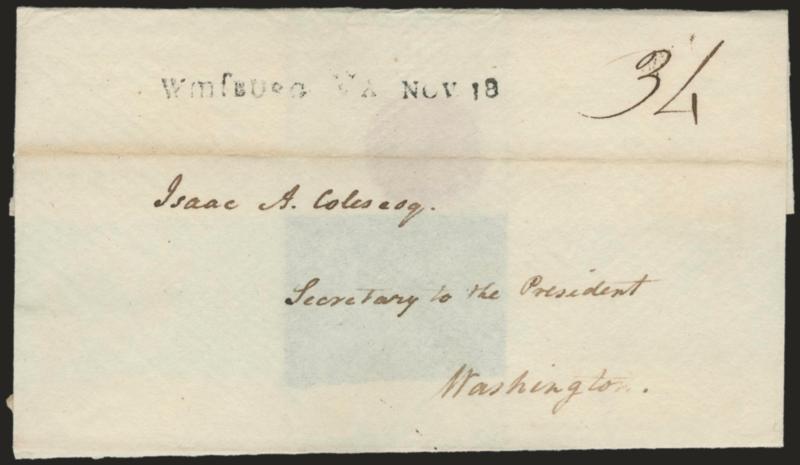 WmſBURG VA NOV 18
34
Isaac A. Coles esq.
Secretary to the President
Washington.